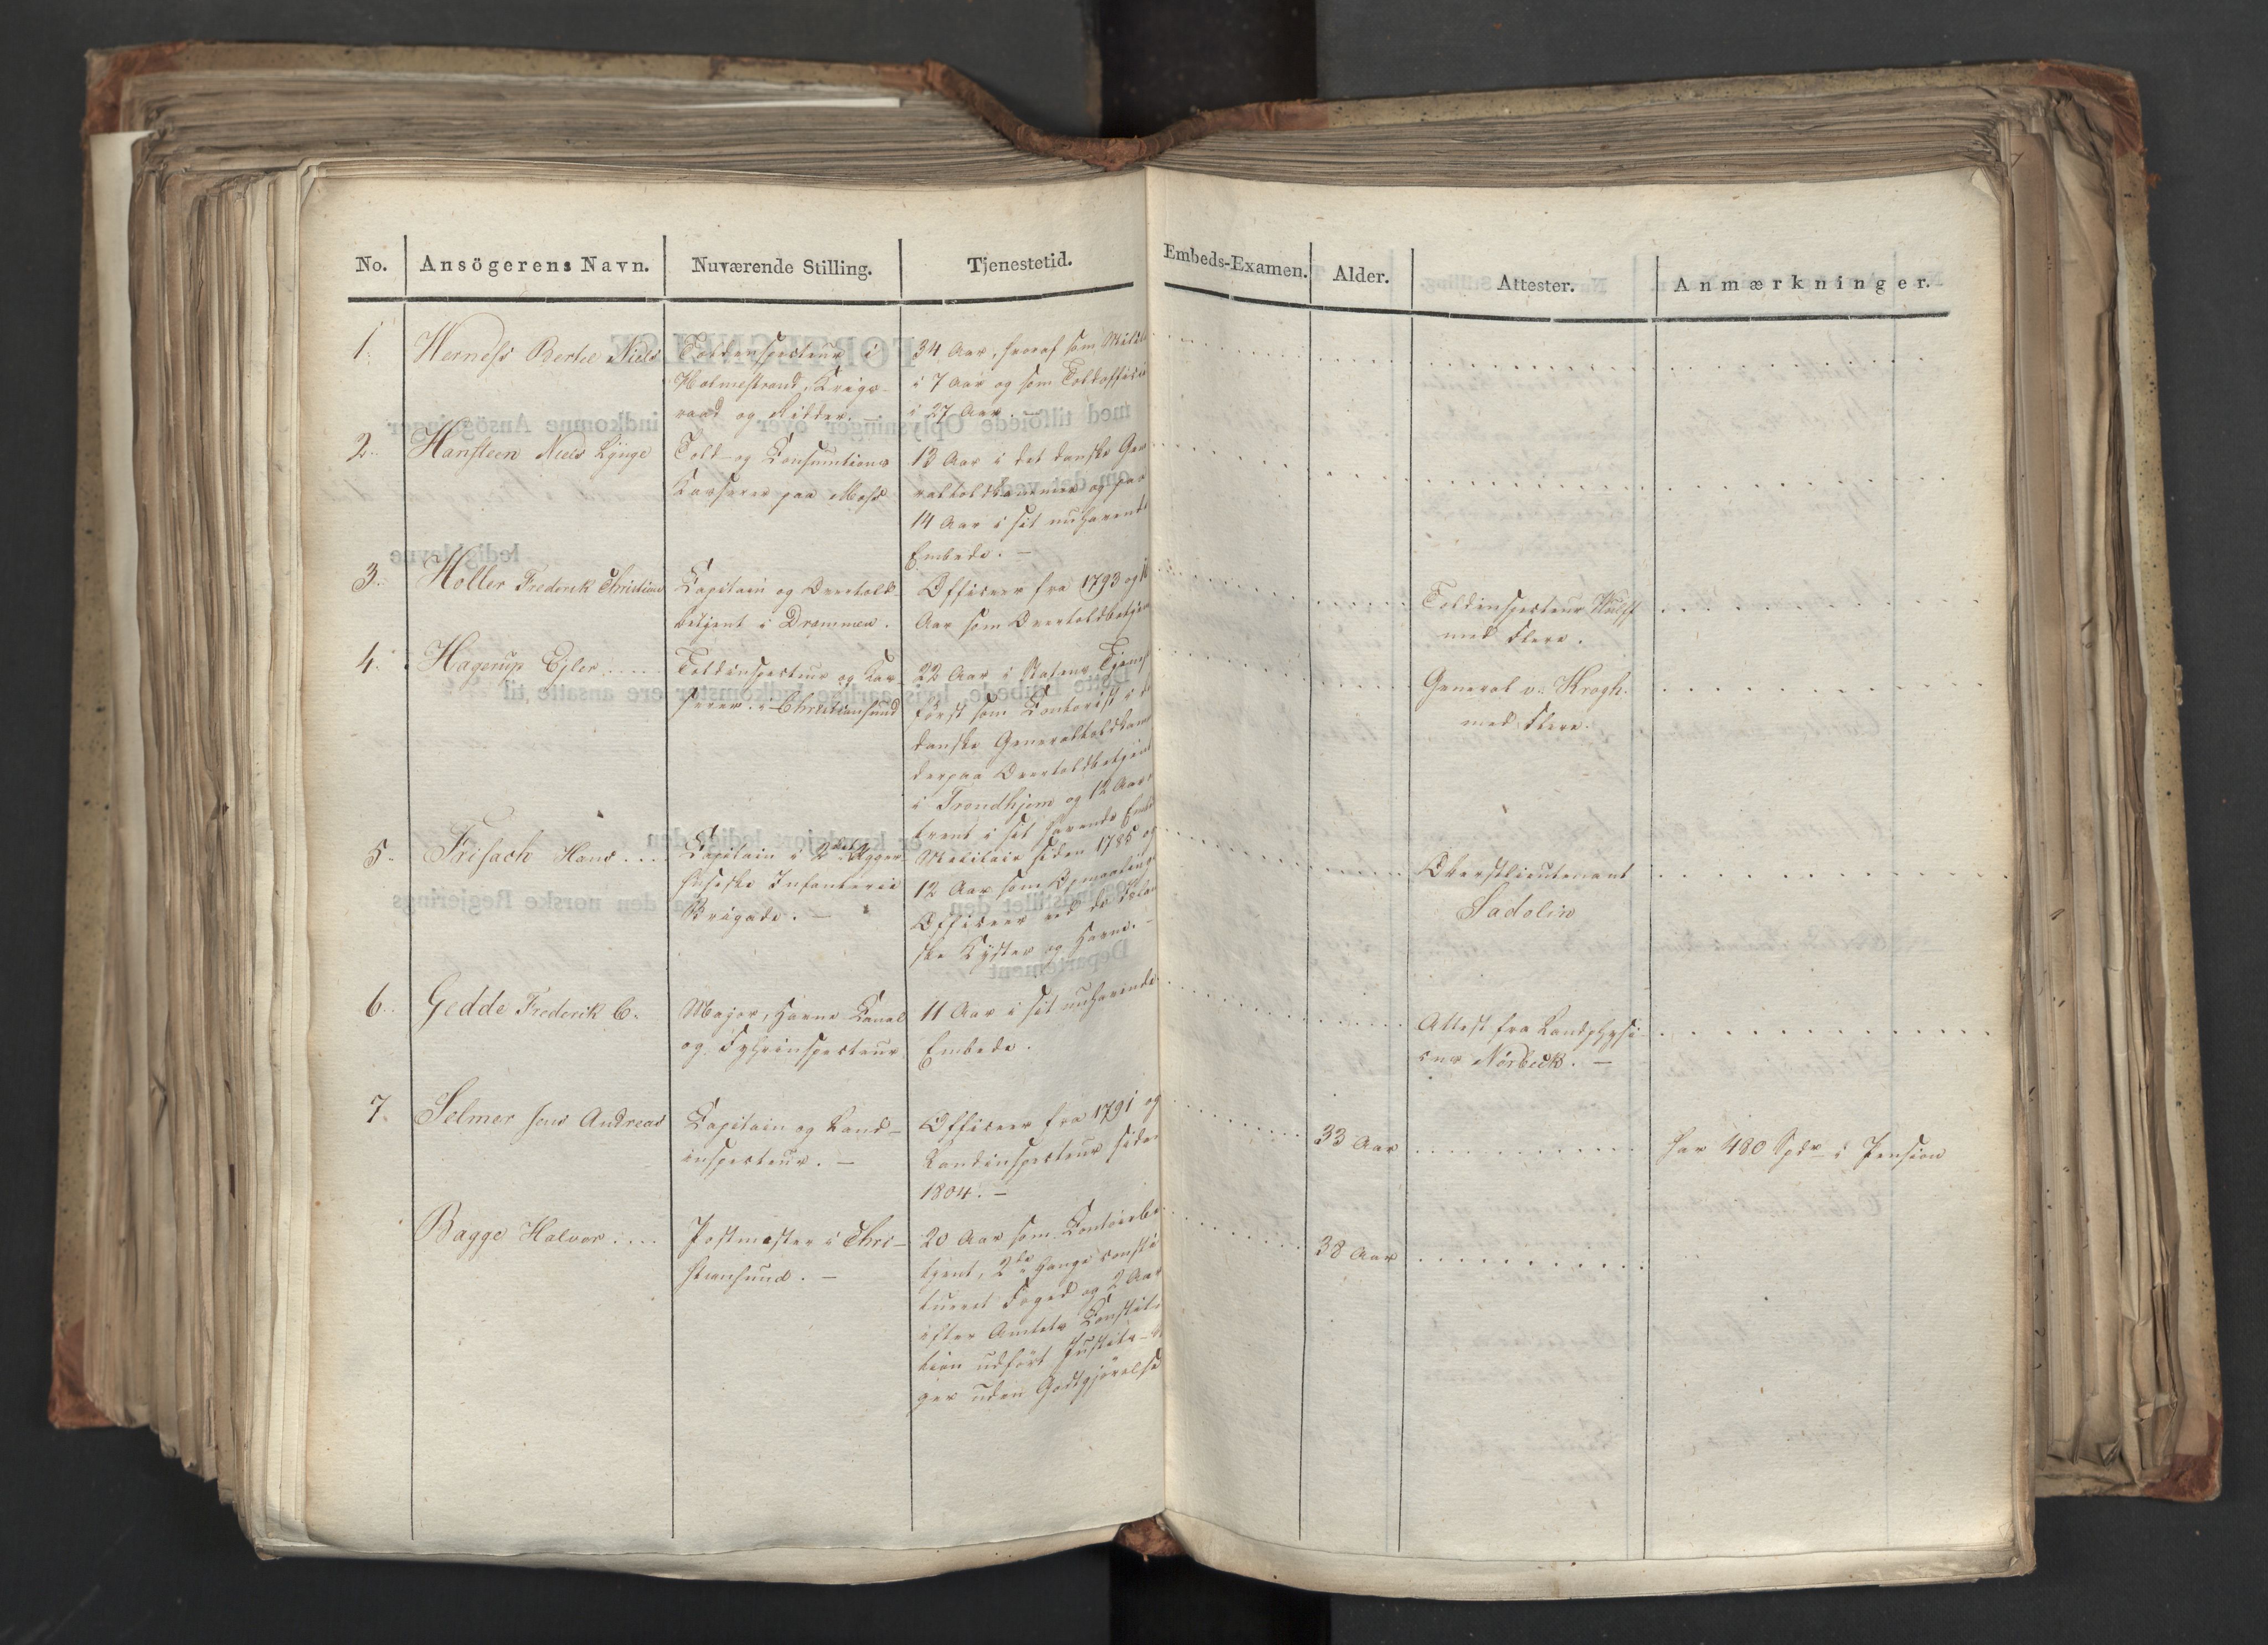 No. Ansögerens Navn. Nuværende Stilling. Tjenestetid. Embeds-Examen. Alder. Attester. Anmærkninger.
1. Herness Bertel Niels
Toldinspecteur i
Holmestrand, Krigs-
raad og Ridder. —
34 Aar, hvoraf som
i 7 Aar og som
i 27 Aar. —
2. Hansteen Niels Lynge
Told- og Consumtions
Kasserer paa Moss
13 Aar i det danske
og paa
14 Aar i sit nuhavende
Embede. —
3. Holler Frederik Christian
Capitain og Overtold-
betjent i Drammen.
Officeer fra 1793 og
Aar som
Toldinspecteur Wulff
med Flere.
4. Hagerup Ejler
Toldinspecteur og Kas-
serer i Christiansund
22 Aar i Statens
först som Contorist i
danske
derpaa Overtoldbetjent
i Trondhjem og 12 Aar
i sit havende
General v. Krogh.
med Flere.
5. Frisach Hans
Capitain i 2det Agger-
huuske Infanterie
Brigade. —
Militair siden 1785 og
12 Aar som Opmaalings
Officeer ved de
ske Kyster og Havne. —
Oberstlieutenant
Sadolin
6. Gedde Frederik C.
Major, Havne Canal
og Fyhrinspecteur
11 Aar i sit nuhavende
Embede.
Attest fra Landphysi-
cus Nörbeck. —
7. Selmer Jens Andreas
Capitain og Land-
inspecteur. —
Officeer fra 1791 og
Landinspecteur siden
1804. —
33 Aar
har 480 Spdr i Pension
Bagge Halvor
Postmester i Chri-
stiansund. —
20 Aar som
tjent, 2de Gange consti-
tueret Foged og 2 Aar
efter Amtets Constitu-
tion udfört
ger uden Godtgjörelse
38 Aar